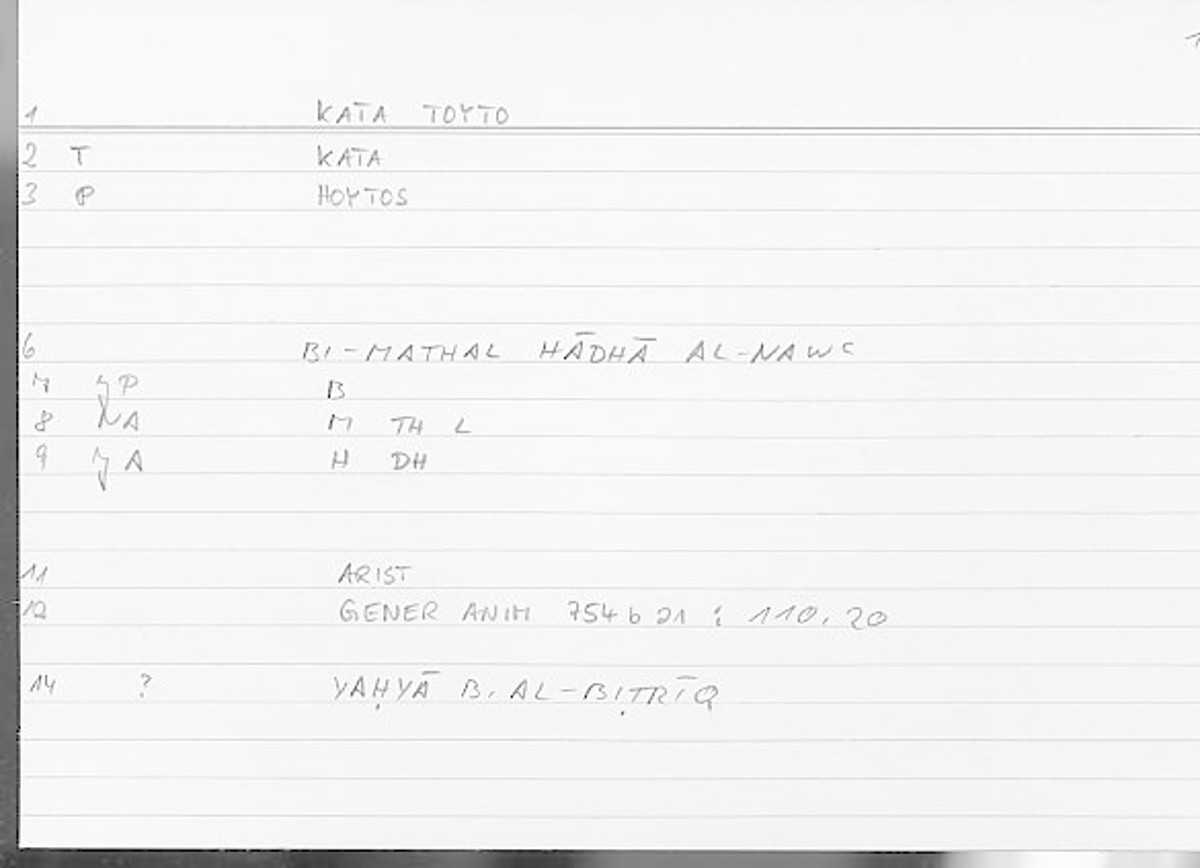 1
1 KATA TOYTO
2 T KATA
3 P HOYTOS
6 BI-MATHAL HĀDHĀ AL-NAWC
7 P B
8 NA M TH L
9 A H DH
11 ARIST
12 GENER ANIM 754 b 21 : 110.20
14 ? YAḤYĀ B. AL-BIṬRĪQ